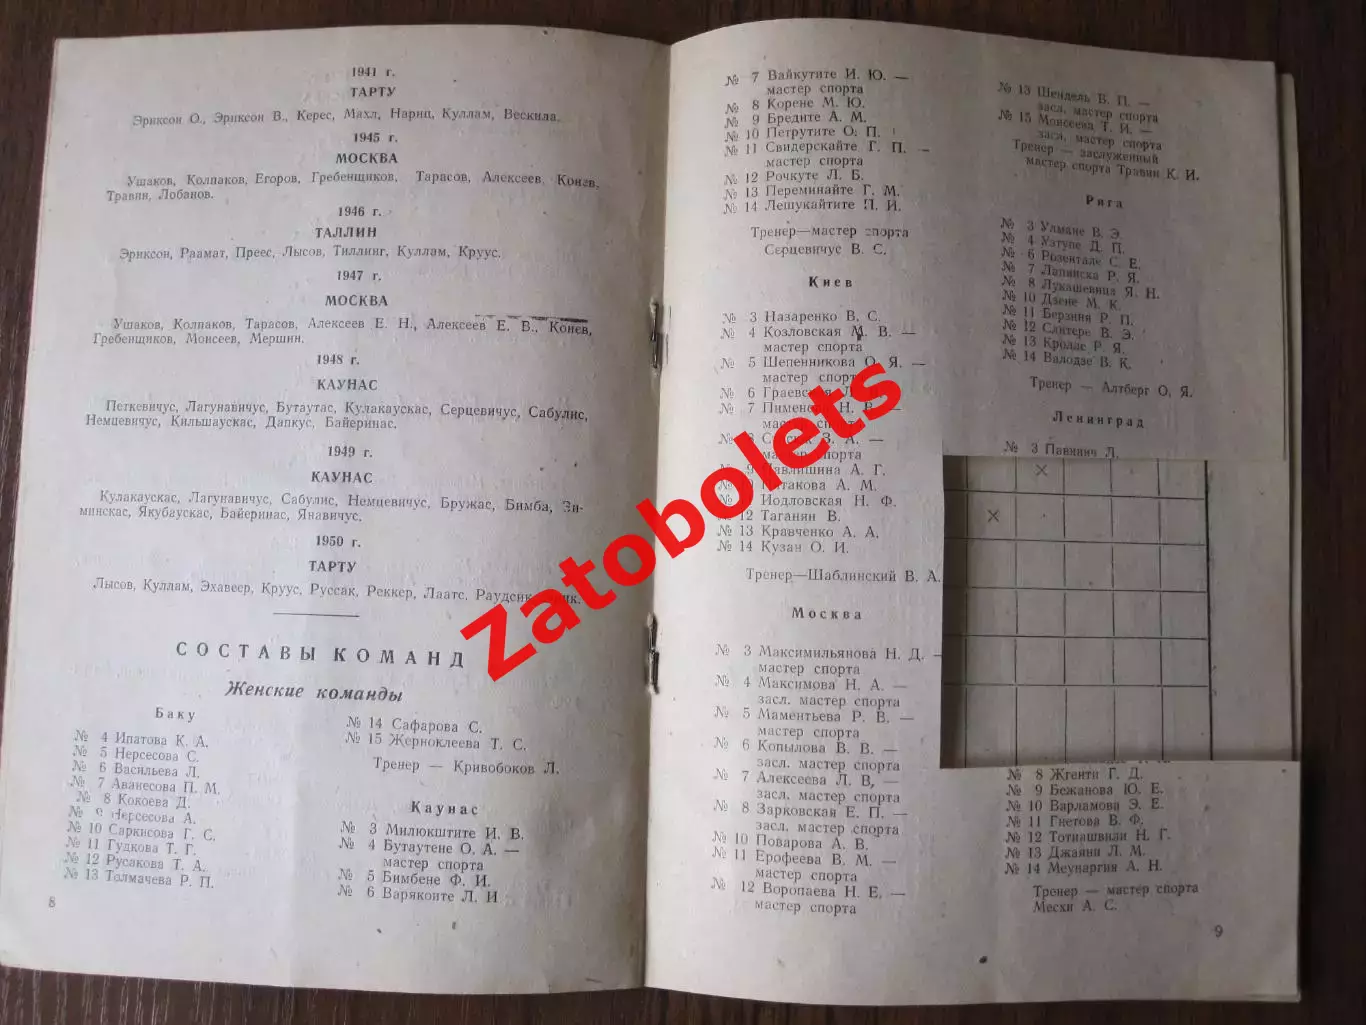 1941 г.
ТАРТУ
Эриксон О., Эриксон В., Керес, Махл, Нариц, Куллам, Вескила.
1945 г.
МОСКВА
Ушаков, Колпаков, Егоров, Гребенщиков, Тарасов, Алексеев, Конев,
Травин, Лобанов.
1946 г.
ТАЛЛИН
Эриксон, Раамат, Преес, Лысов, Тиллинг, Куллам, Круус.
1947 г.
МОСКВА
Ушаков, Колпаков, Тарасов, Алексеев Е. Н., Алексеев Е. В., Конев,
Гребенщиков, Моисеев, Мершин.
1948 г.
КАУНАС
Петкевичус, Лагунавичус, Бутаутас, Кулакаускас, Серцевичус, Сабулис,
Немцевичус, Кильшаускас, Дапкус, Байеринас.
1949 г.
КАУНАС
Кулакаускас, Лагунавичус, Сабулис, Немцевичус, Бружас, Бимба, Зи-
минскас, Якубаускас, Байеринас, Янавичус.
1950 г.
ТАРТУ
Лысов, Куллам, Эхавеер, Круус, Руссак, Реккер, Лаатс,
СОСТАВЫ КОМАНД
Женские команды
Баку
№ 4 Ипатова К. А.
№ 5 Нерсесова С.
№ 6 Васильева Л.
№ 7 Аванесова П. М.
№ 8 Кокоева Д.
№ 9 Нерсесова А.
№ 10 Саркисова Г. С.
№ 11 Гудкова Т. Г.
№ 12 Русакова Т. А.
№ 13 Толмачева Р. П.
8
№ 14 Сафарова С.
№ 15 Жерноклеева Т. С.
Тренер — Кривобоков Л.
Каунас
№ 3 Милюкштите И. В.
№ 4 Бутаутене О. А. —
мастер спорта
№ 5 Бимбене Ф. И.
№ 6 Варякоите Л. И
№ 7 Вайкутите И. Ю. —
мастер спорта
№ 8 Корене М. Ю.
№ 9 Бредите А. М.
№ 10 Петрутите О. П.
№ 11 Свидерскайте Г. П. —
мастер спорта
№ 12 Рочкуте Л. Б.
№ 13 Переминайте Г. М.
№ 14 Лешукайтите П. И.
Тренер—мастер спорта
Серцевичус В. С.
Киев
№ 3 Назаренко В. С.
№ 4 Козловская М. В. —
мастер спорта
№ 5 Шепенникова О. Я. —
мастер спорта
№ 6
№ 7
мастер спорта
А. —
мастер спорта
9 Павлишина А. Г.
А. М.
Иодловская Н. Ф.
№ 12 Таганян В.
№ 13 Кравченко А. А.
№ 14 Кузан О. И.
Тренер—Шаблинский В. А.
Москва
№ 3 Максимильянова Н. Д. —
мастер спорта
№ 4 Максимова Н. А. —
засл. мастер спорта
№ 5 Маментьева Р. В. —
мастер спорта
№ 6 Копылова В. В. —
засл. мастер спорта
№ 7 Алексеева Л. В,
засл. мастер спорта
№ 8 Зарковская Е. П. —
засл. мастер спорта
№ 10 Поварова А. В.
№ 11 Ерофеева В. М. —
мастер спорта
№ 12 Воропаева Н. Е. —
мастер спорта
№ 13 Шендель В. П. —
засл. мастер спорта
№ 15 Моисеева Т. И. —
засл. мастер спорта
Тренер — заслуженный
мастер спорта Травин К. И.
Рига
№ 3 Улмане В. Э.
№ 4 Узтупе Д. П.
№ 6 Розентале С. Е.
№ 7 Лапинска Р. Я.
№ 8 Лукашевица Я. Н.
№ 10 Дзене М. К.
№ 11 Берзиня Р. П.
№ 12 Слитере В. Э.
№ 13 Кролле Р. Я.
№ 14 Валодзе В. К.
Тренер — Алтберг О. Я.
Ленинград
№ 3 Павинич Л.
№ 8 Жгенти Г. Д.
№ 9 Бежанова Ю. Е.
№ 10 Варламова Э. Е.
№ 11 Гнетова В. Ф.
№ 12 Тотиашвили Н. Г.
№ 13 Джаяни Л. М.
№ 14 Меунаргия А. Н.
Тренер — мастер спорта
Месхи А. С.
9
Zatobolets